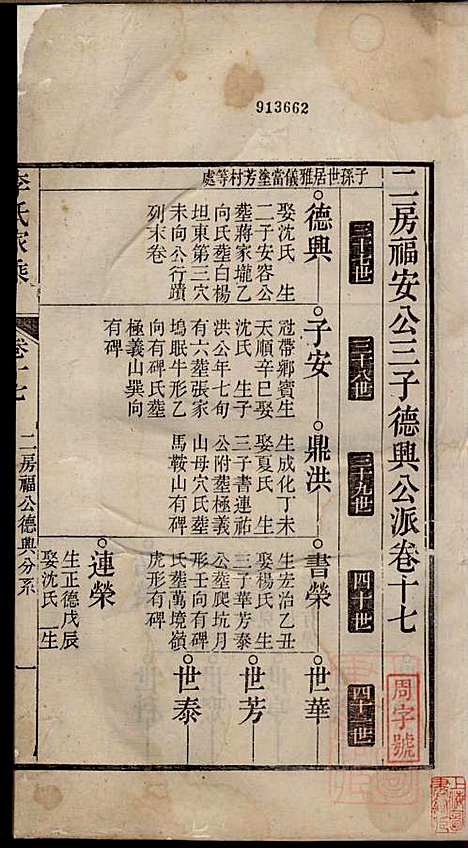 913662
二房福安公三子德興公派卷十七
周字號
三十七世
三十八世
三十九世
四十世
四十一世
子孫世居雅儀當塗芳村等處
德興
娶沈氏 生
二子安容公
塟蔣家壠乙
向氏塟白楊
坦東第三穴
未向公行蹟
列末卷
子安
冠帶鄉賓生
天順辛巳娶
沈氏 生子
洪公年七旬
有六塟張家
塢眠牛形乙
向有碑氏塟
極義山巽向
有碑
鼎洪
生成化丁未
娶夏氏 生
三子書連祐
公附塟極義
山母穴氏塟
馬鞍山有碑
書榮
生宏治乙丑
娶楊氏 生
三子華芳泰
公塟爬坑月
形壬向有碑
氏塟萬境嶺
虎形有碑
世華
世芳
世泰
連榮
生正德戊辰
娶沈氏 生
李氏家乘
卷十七
二房福公德興分系
一